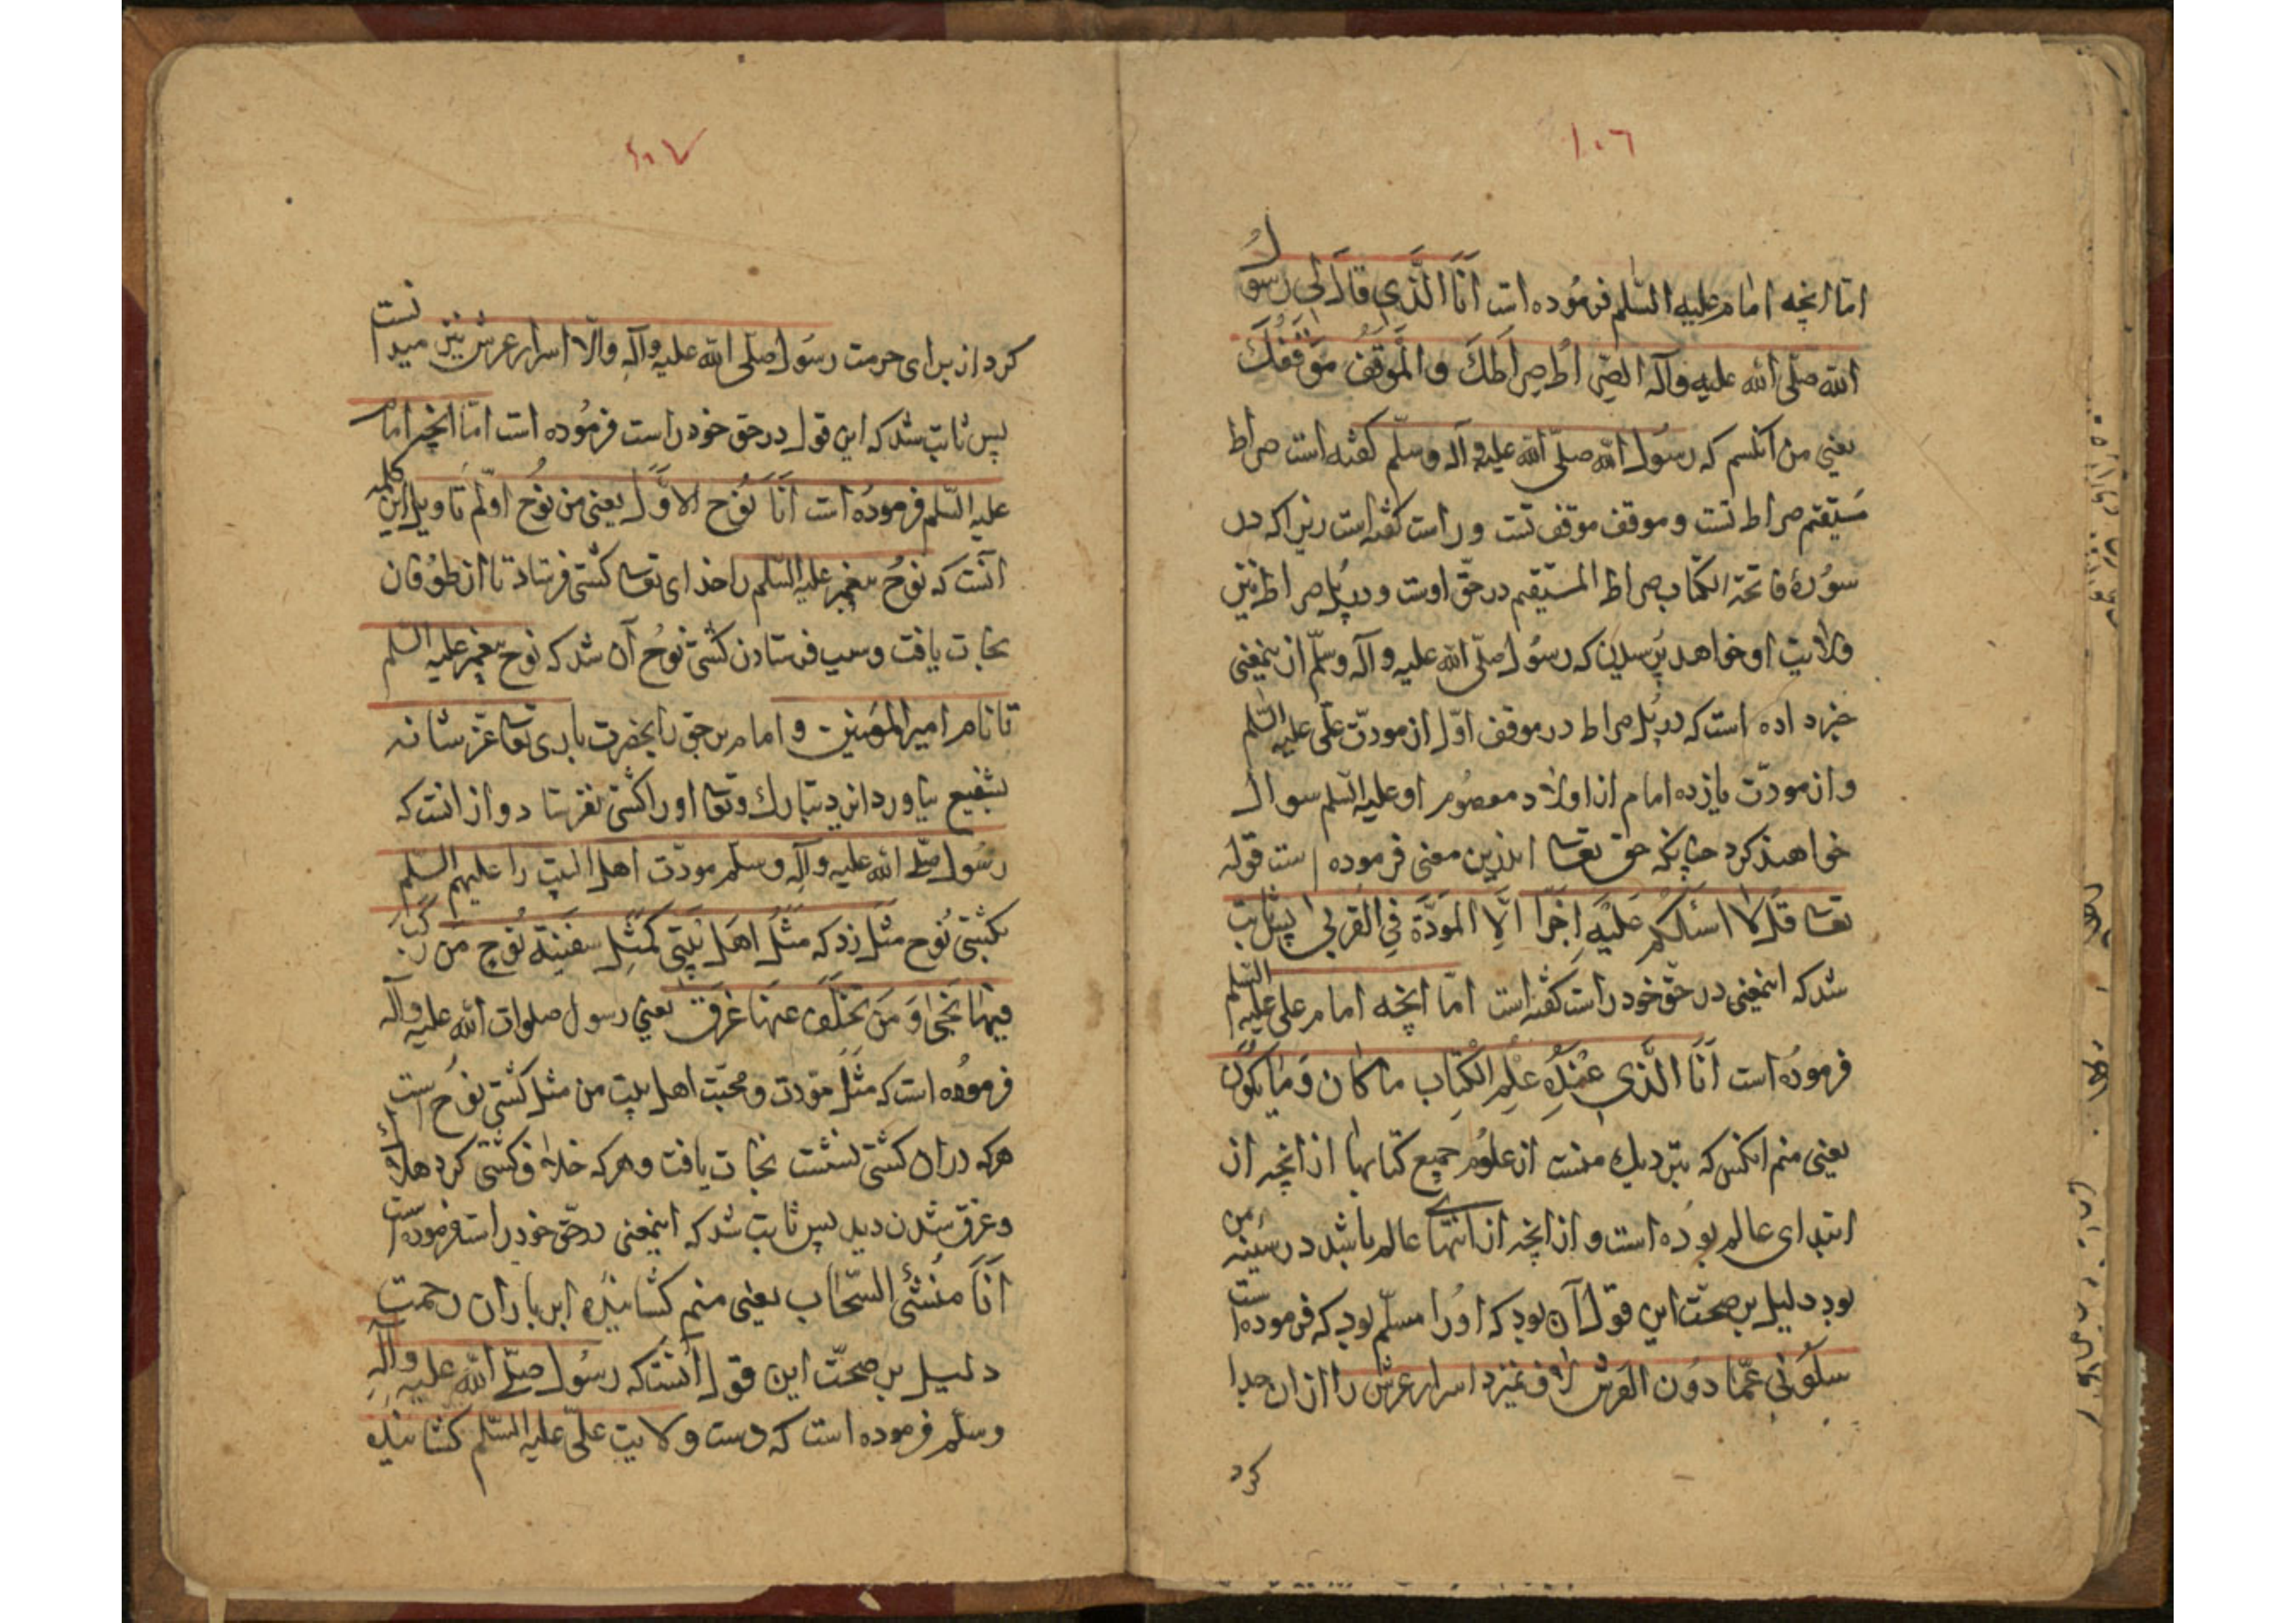 ١٠٦
اما انچه امام علیه السّلم فرمُوده است اَنَا الَّذِی قالَ لِی رسُولُ
الله صلّی الله علیه وآله الصِّراطُ صِراطَكَ وَالمَوقِفُ مَوقِفُكَ
یعنی من انکسم که رسُول الله صلّی الله علیه وآله وسلّم کفته است صراط
مُستقیم صراط تست وموقف موقف تست وراست کفته است زیرا که در
سوُرهٔ فاتحة الکتاب صراط المستقیم درحقّ اوست ودر پُل صراط نیز
ولایت او خواهد پرسیدن که رسُول صلّی الله علیه وآله وسلّم ازینمعنی
خبر داده است که در پُل صراط در موقف اوّل از مودّت علی علیه السّلم
واز مودّت یازده امام از اولاد معصوُم او علیه السّلم سوال
خواهند کرد چنانکه حق تعا اندرین معنی فرموده است قوله
تعا قل لا اسئلکم علیه اَجراً اِلّا المودّة فِی القربی پس ثابت
شد که اینمعنی درحقّ خود راست کفته است امّا انچه امام علی علیه السّلم
فرموُده است اَنَا الَّذی عِندَهُ عِلمِ الکِتاب ما کان وَما یکوُن
یعنی منم انکس که بنزدیك منست از علوُم جمیع کتابها از انچه از
ابتدای عالم بوُده است واز انچه از انتهای عالم باشد در سینه من
بود دلیل بر صحّت این قول آن بود که اوُرا مسلّم بود که فرموده است
سلوُنی عمّا دوُن العرش اسرار عرش را ازان جدا
کرد
١٠٧
کرد از برای حرمت رسُول صلّی الله علیه وآله والّا اسرار عرش نیز میدانست
پس ثابت شد که این قول درحق خود راست فرموُده است امّا انچه امام
علیه السّلم فرموُده است اَنَا نُوح الاوَّل یعنی من نوُح اوّلم تاویل این کلمه
آنست که نوُح پیغمبر علیه السّلم را خدای تعا کشتی فرستاد تا از طوُفان
نجات یافت وسبب فرستادن کشتی نوُح آن شد که نوح پیغمبر علیه السّلم
تا نام امیر المؤمنین وامام بر حق را بحضرت باری تعا عزّ شانه
بشفیع نیاورد ایزد تبارك وتعا اورا کشتی نفرستاد واز انست که
رسُول صلّی الله علیه وآله وسلّم مودّت اهل البیت را علیهم السّلم
بکشتی نُوح مثل زد که مَثَل اَهل بَیتی کَمَثلِ سفینة نُوح مَن رَکِبَ
فیها نَجی وَمَن تَخَلَّفَ عَنها غَرَقَ یعنی رسول صلوات الله علیه وآله
فرموُده است که مثل موّدت ومحبّت اهل بیت من مثل کشتی نوُح است
هرکه دران کشتی نشست نجات یافت وهرکه خلاف کشتی کرد هلاك
وغرق شدن دید پس ثابت شد که اینمعنی درحقّ خود راست فرموده است
اَنَا مُنشئ السَّحاب یعنی منم کشانیده ابر باران رحمت
دلیل بر صحّت این قول آنست که رسُول صلّی الله علیه وآله
وسلّم فرموده است که دست ولایت علی علیه السّلم کشانیده